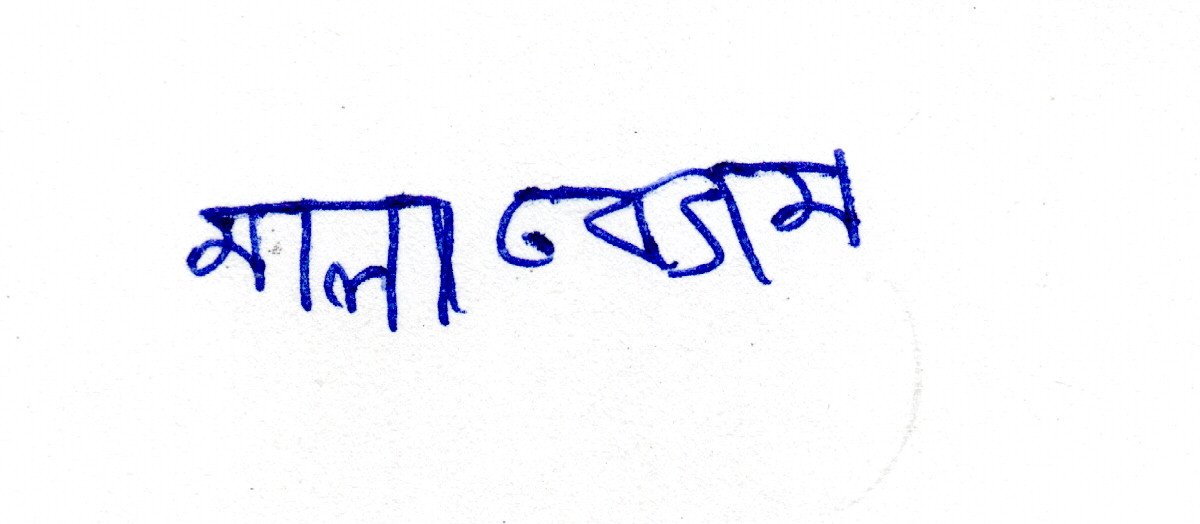 মালা বেগম